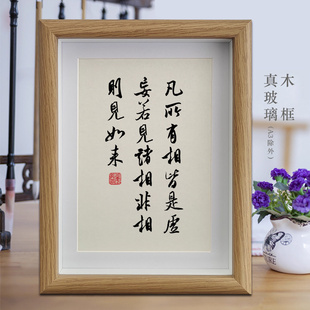 凡所有相皆是虛
妄若見諸相非相
則見如来
木框
真玻璃
(A3除外)